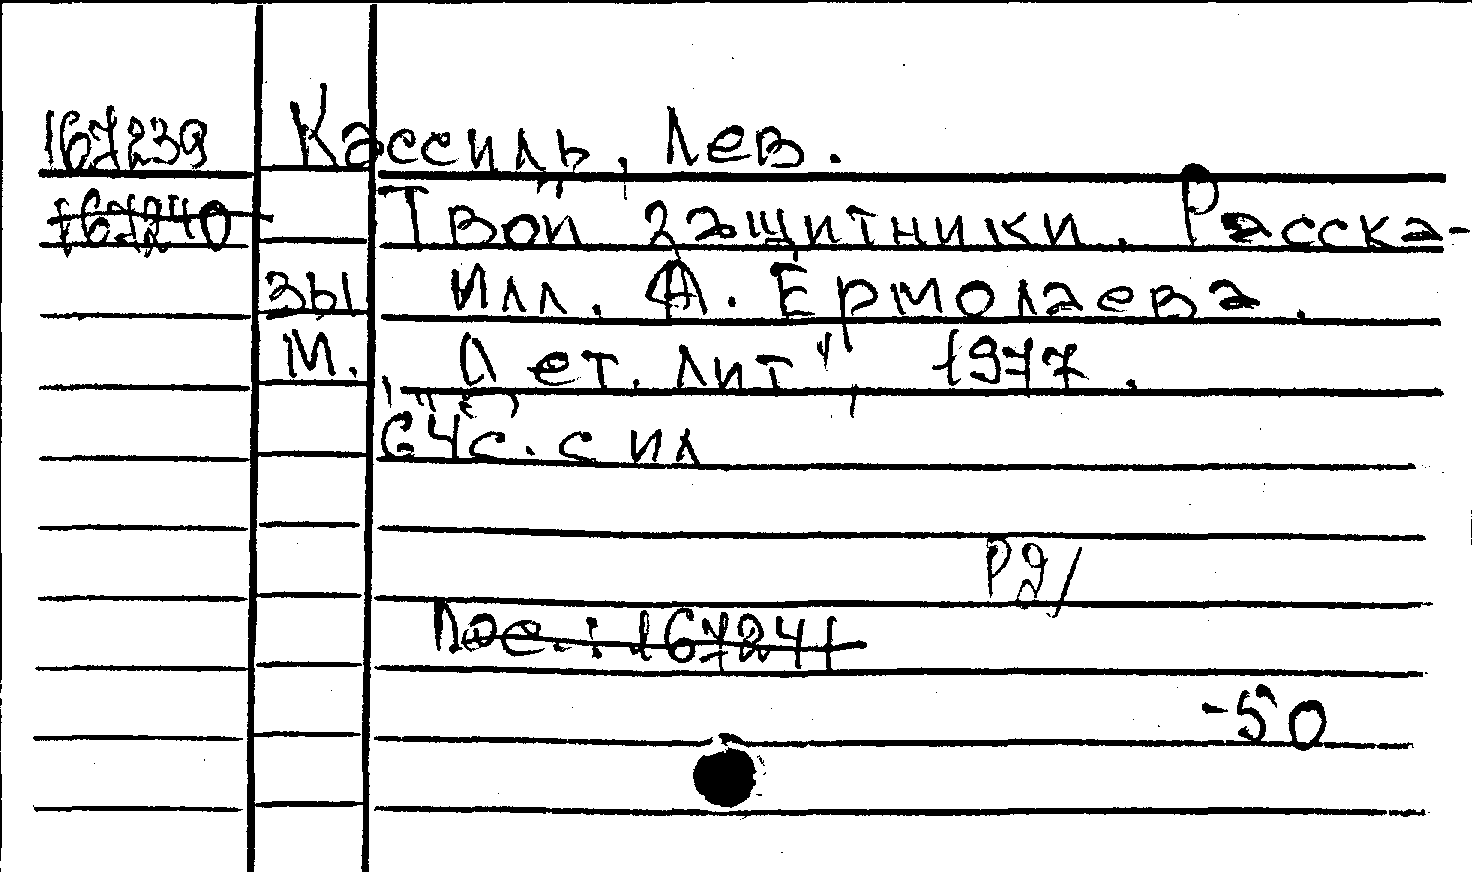 167239 Кассиль, Лев.
167240 Твои защитники. Расска-
зы Илл. А. Ермолаева.
М., "Дет. лит", 1977.
64с. с ил
РД/
Пос.: 167241
-50